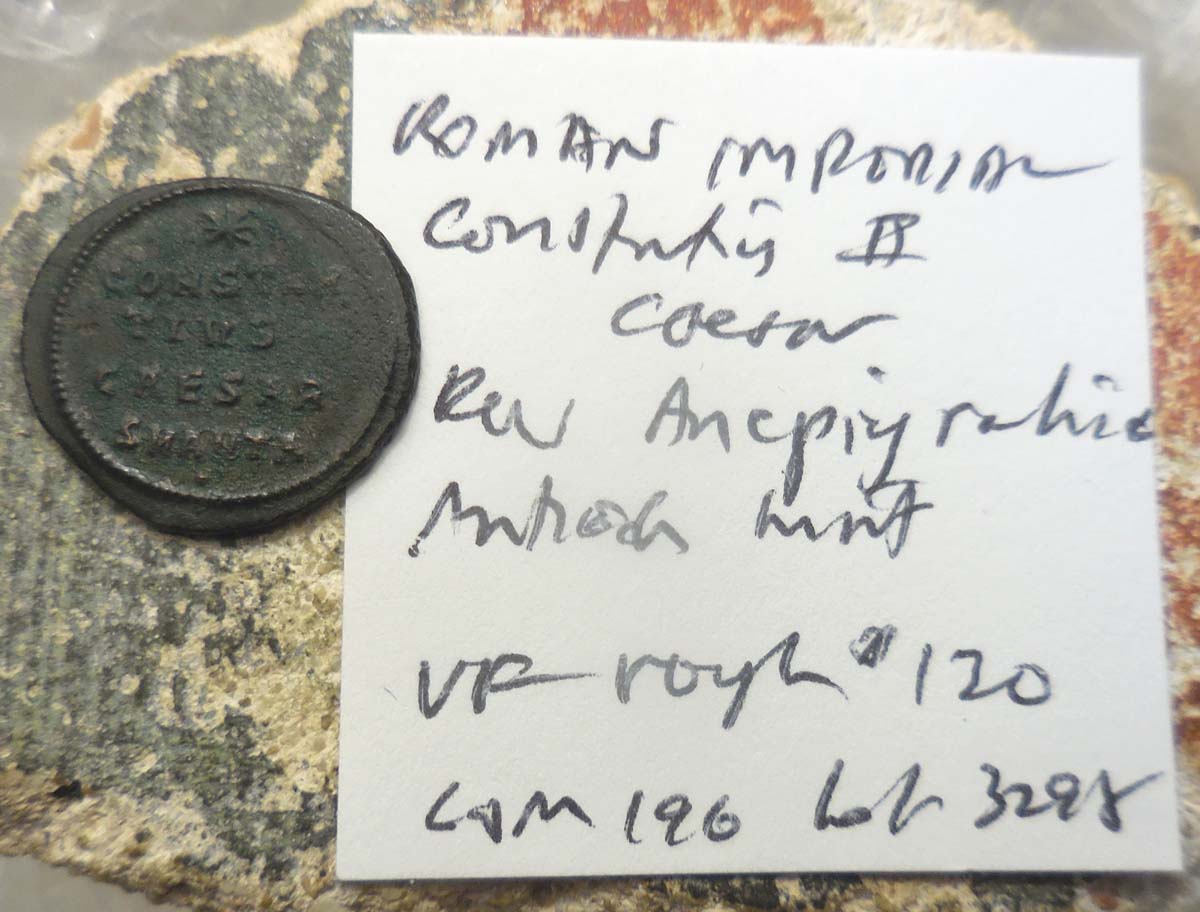 CONSTAN
TIVS
CAESAR
ROMAN IMPERIAL
Constantius II
Caesar
Rev Anepigraphic
Antioch mint
VF rough #120
196 Lot 3298